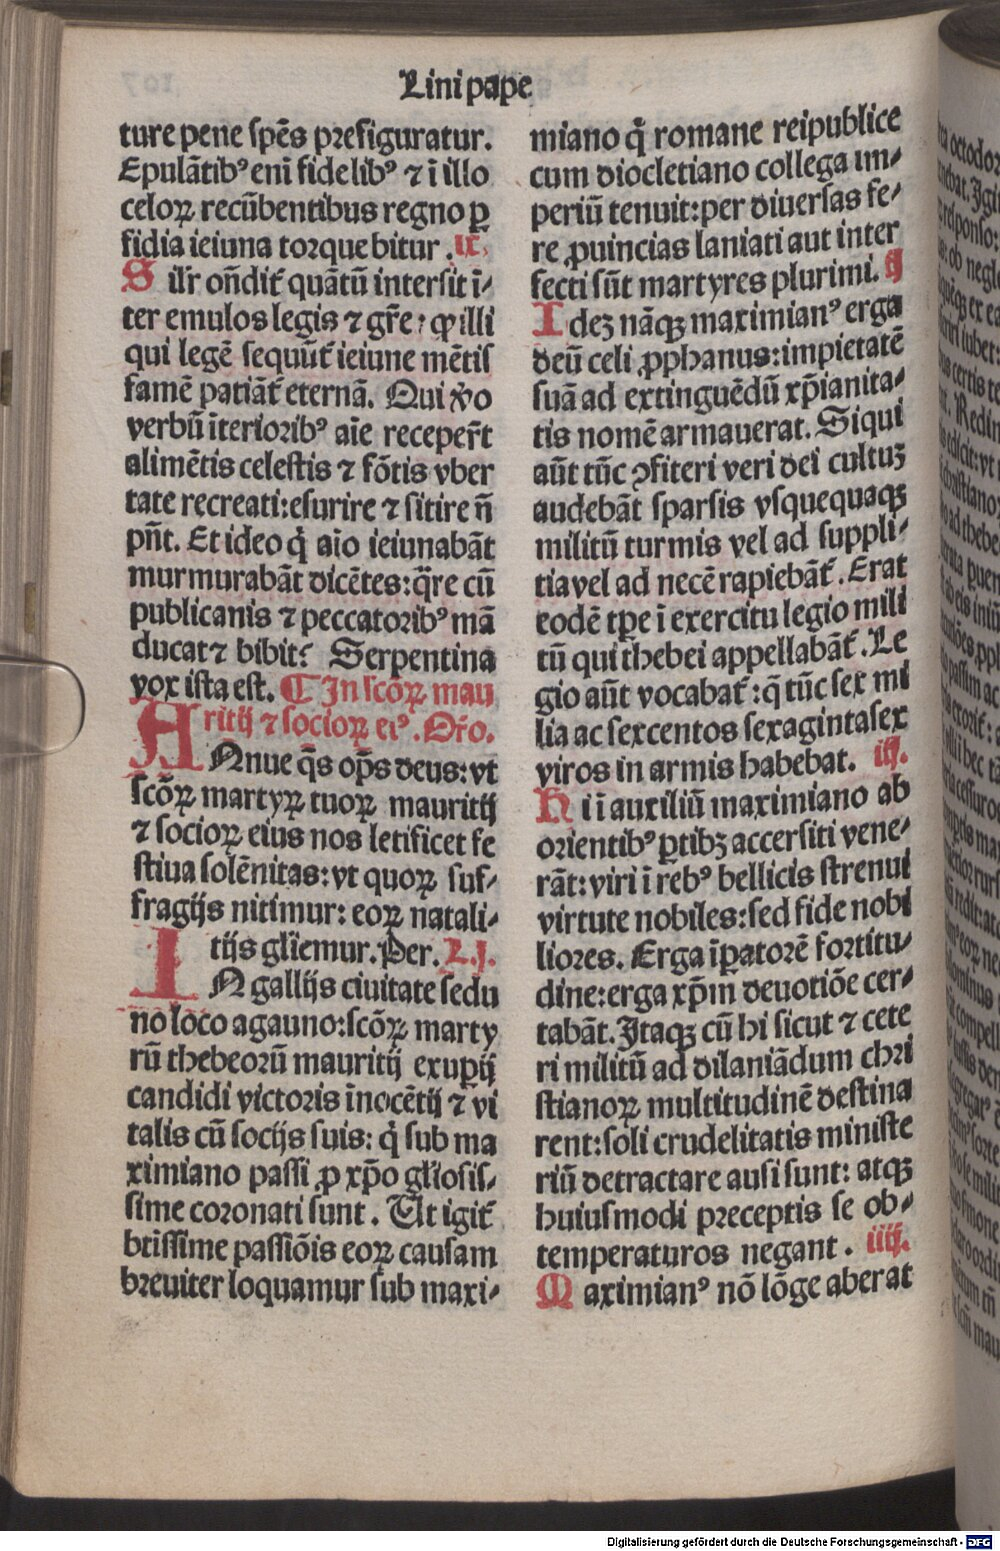 Lini pape
ture pene spēs prefiguratur.
Epulātibꝰ eni̅ fidelibꝰ ⁊ ī illo
celoꝝ recūbentibus regno ꝑ
fidia ieiuna torquebitur. ix.
Silr̄ on̄dit̄ quātū intersit ī⸗
ter emulos legis ⁊ gr̄e: ꝙ illi
qui legē sequūt̄ ieiune mētis
famē patiāt̄ eternā. Qui v̄o
verbū īterioribꝰ aīe recepert̄
alimētis celestis ⁊ fōtis vber
tate recreati: esurire ⁊ sitire n̄
pn̄t. Et ideo q̇ aīo ieiunabāt
murmurabāt dicētes: q̄re cū
publicanis ⁊ peccatoribꝰ mā
ducat ⁊ bibit? Serpentina
vox ista est. ¶ In scōꝝ mau
ritij ⁊ socioꝝ eiꝰ. Or̄o.
ANnue q̄s op̄s deus: vt
scōꝝ martyꝝ tuoꝝ mauritij
⁊ socioꝝ eius nos letificet fe
stiua solēnitas: vt quoꝝ suf⸗
fragijs nitimur: eoꝝ natali⸗
tijs gl̄iemur. Per. L.j.
IN gallijs ciuitate sedu
no loco agauno: scōꝝ marty
rū thebeorū mauritij exuꝑij
candidi victoris īnocētij ⁊ vi
talis cū socijs suis: q̇ sub ma
ximiano passi ꝓ xp̄o gl̄iosis⸗
sime coronati sunt. Ut igit̄
br̄issime passiōis eoꝝ causam
breuiter loquamur sub maxi⸗
miano q̇ romane reipublice
cum diocletiano collega im⸗
periū tenuit: per diuersas fe⸗
re ꝓuincias laniati aut inter
fecti sūt martyres plurimi. ij
Idez nāqꝫ maximianꝰ erga
deū celi ꝓphanus: impietatē
suā ad extinguēdū xp̄ianita⸗
tis nomē armauerat. Siqui
aūt tūc ꝯfiteri veri dei cultuꝫ
audebāt sparsis vsquequaqꝫ
militū turmis vel ad suppli⸗
tia vel ad necē rapiebāt̄. Erat
eodē tp̄e ī exercitu legio mili
tū qui thebei appellabāt̄. Le
gio aūt vocabat̄: q̄ tūc sex mi
lia ac sexcentos sexaginta sex
viros in armis habebat. iij.
Hi ī auxiliū maximiano ab
orientibꝰ ꝑtibꝫ accersiti vene⸗
rāt: viri ī rebꝰ bellicis strenui
virtute nobiles: sed fide nobi
liores. Erga īꝑatorē fortitu⸗
dine: erga xp̄m deuotiōe cer⸗
tabāt. Itaqꝫ cū hi sicut ⁊ cete
ri militū ad dilaniādum chri
stianoꝝ multitudinē destina
rent: soli crudelitatis ministe
riū detractare ausi sunt: atqꝫ
huiusmodi preceptis se ob⸗
temperaturos negant. iiij.
Maximianꝰ nō lōge aberat
Digitalisierung gefördert durch die Deutsche Forschungsgemeinschaft - DFG